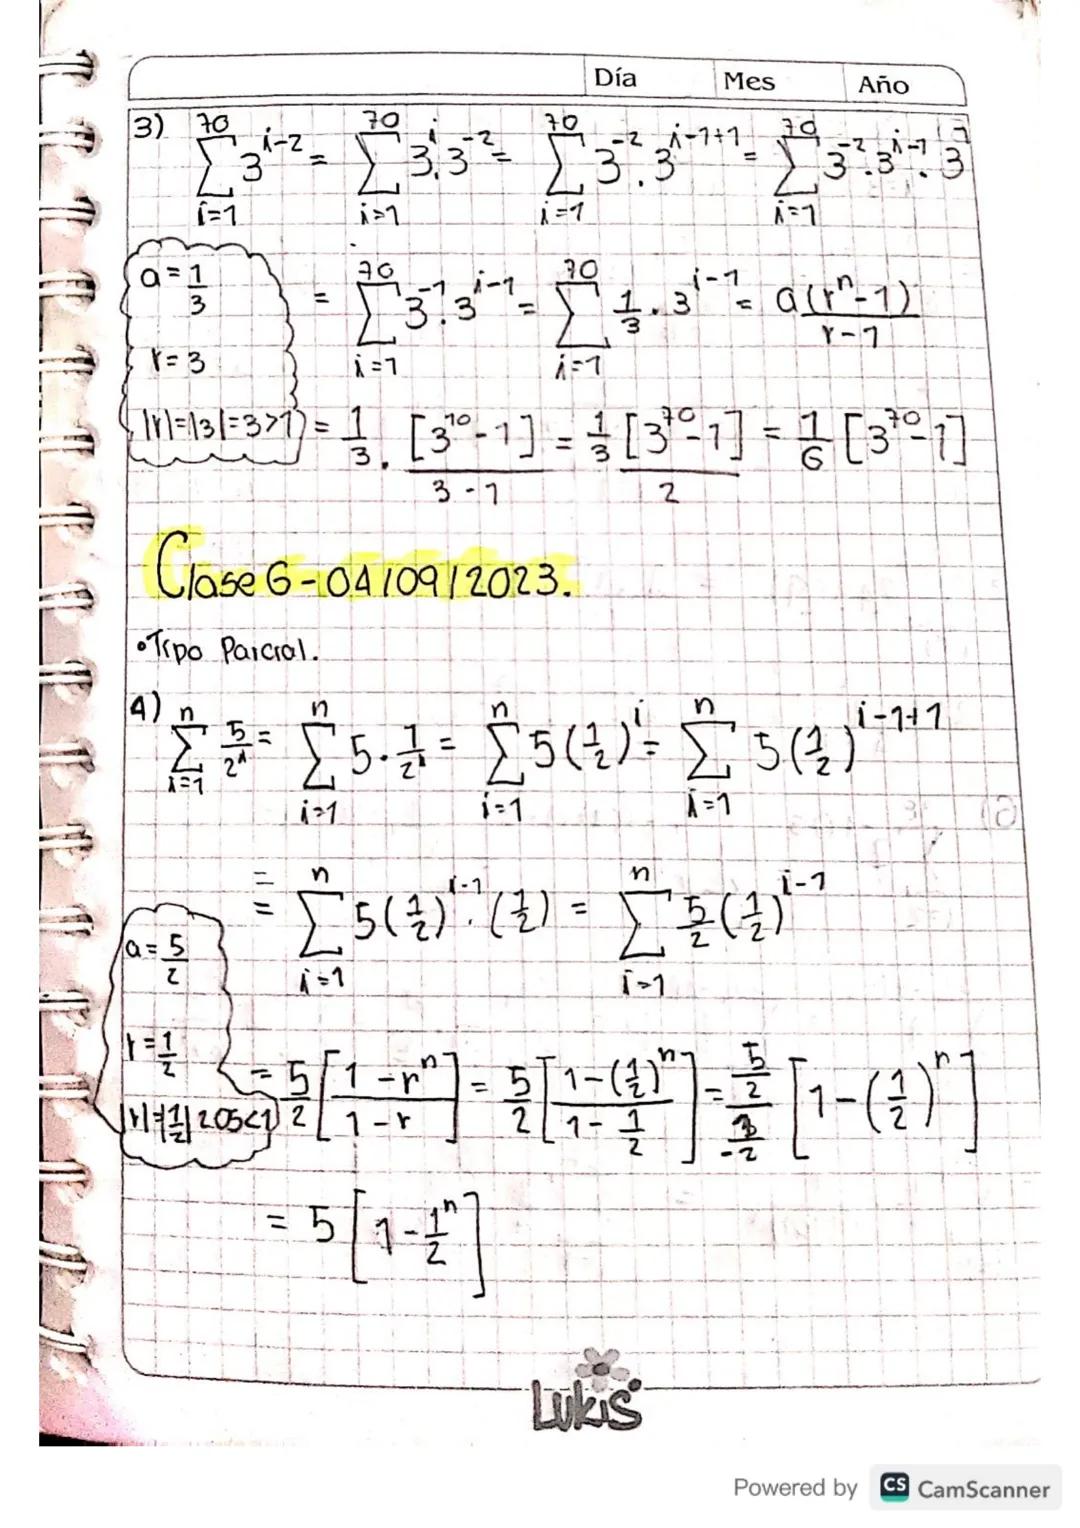 Día Mes Año
3) \sum_{i=1}^{70} 3^{i-2} = \sum_{i=1}^{70} 3^{i}.3^{-2} = \sum_{i=1}^{70} 3^{-2}.3^{i-1+1} = \sum_{i=1}^{70} 3^{-2}.3^{i-1}.3^{1}
a = \frac{1}{3}
r = 3
|r|=|3|=3>1
= \sum_{i=1}^{70} 3^{-1}.3^{i-1} = \sum_{i=1}^{70} \frac{1}{3}.3^{i-1} = \frac{a(r^{n}-1)}{r-1}
= \frac{1}{3}.\frac{[3^{70}-1]}{3-1} = \frac{1}{3}\frac{[3^{70}-1]}{2} = \frac{1}{6}[3^{70}-1]
Clase 6-04/09/2023.
•Tipo Parcial.
4) \sum_{i=1}^{n} \frac{5}{2^{i}} = \sum_{i=1}^{n} 5.\frac{1}{2^{i}} = \sum_{i=1}^{n} 5(\frac{1}{2})^{i} = \sum_{i=1}^{n} 5(\frac{1}{2})^{i-1+1}
= \sum_{i=1}^{n} 5(\frac{1}{2})^{i-1}.(\frac{1}{2}) = \sum_{i=1}^{n} \frac{5}{2}(\frac{1}{2})^{i-1}
a = \frac{5}{2}
r = \frac{1}{2}
= \frac{5}{2}[\frac{1-r^{n}}{1-r}] = \frac{5}{2}[\frac{1-(\frac{1}{2})^{n}}{1-\frac{1}{2}}] = [1-(\frac{1}{2})^{n}]
= 5[1-\frac{1}{2}^{n}]
Lukis
Powered by CS CamScanner